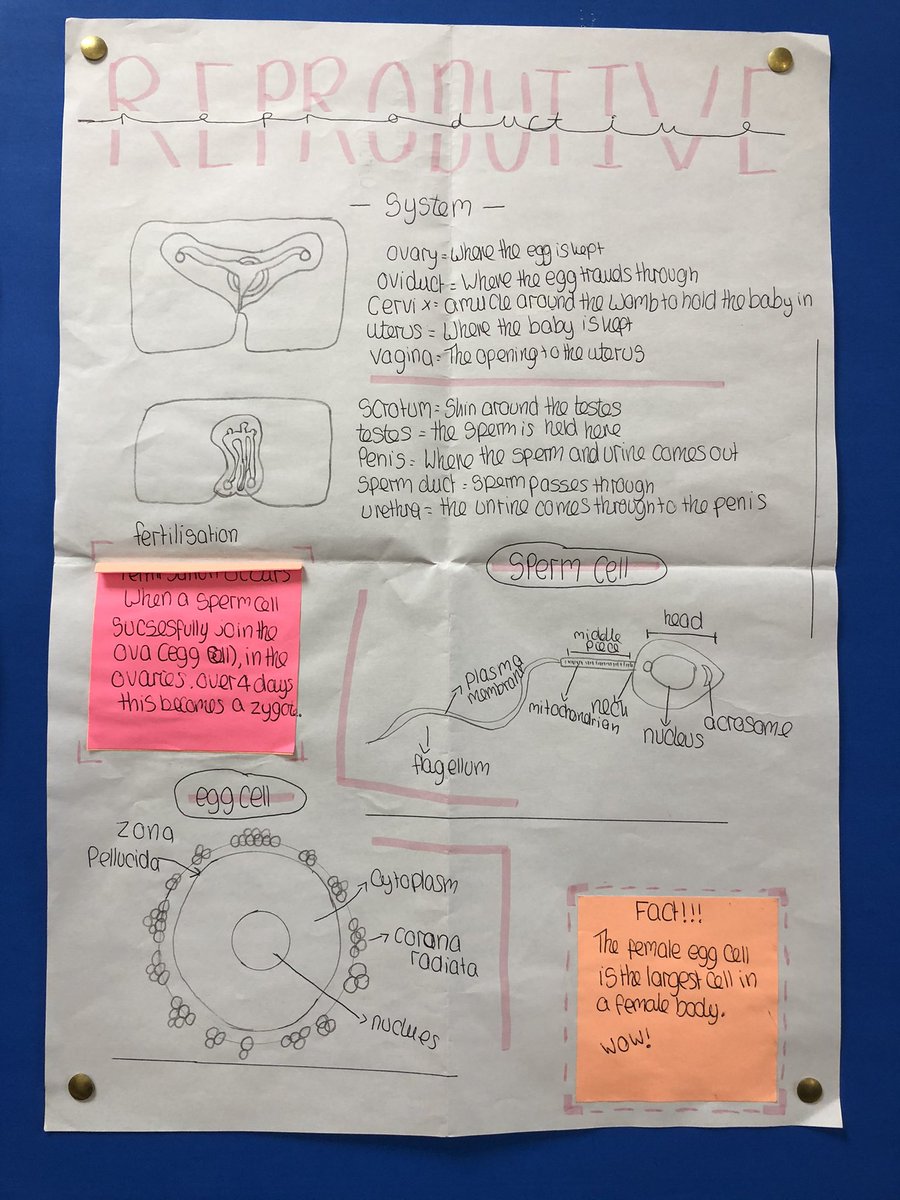 REPRODUTIVE
reproductive
- System -
ovary = Where the egg is kept
oviduct = Where the egg travels through
Cervix = a mucle around the womb to hold the baby in
uterus = Where the baby is kept
vagina = The opening to the uterus
Scrotum = Skin around the testes
testes = the sperm is held here
Penis = Where the sperm and urine comes out
Sperm duct = Sperm passes through
urethra = the untine comes through to the penis
fertilisation
fertilisation occurs
When a sperm cell
Sucsesfully join the
Ova (egg cell), in the
ovaries. over 4 days
this becomes a zygote.
Sperm cell
head
middle
piece
plasma
membrane
mitochondrian
neck
nucleus
acrosome
flagellum
egg cell
Zona
Pellucida
Cytoplasm
Corona
radiata
nuclues
Fact!!!
The female egg cell
is the largest cell in
a female body.
WOW!